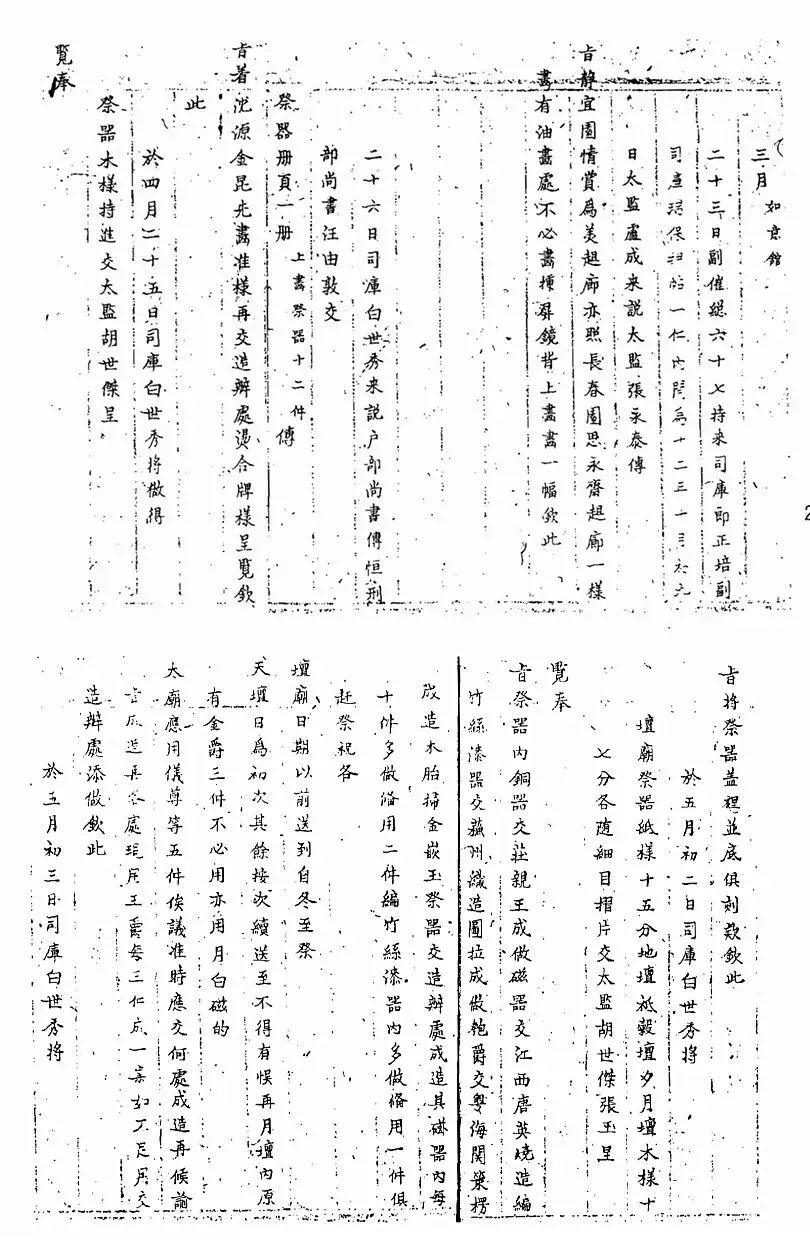 三月如意館
二十三日副催總六十七持來司庫郎正培副
司庫瑞保押帖一
日太監盧成來說太監張永泰傳
旨靜宜園情賞為美起廊亦照長春園思永齋起廊一樣
畫有油畫處不必畫挿屏鏡背上畫畫一幅欽此
二十六日司庫白世秀來說户部尚書傅恒刑
部尚書汪由敦交
祭器册頁一册上畫祭器十二件傳
旨着沈源金昆先畫准樣再交造辦處燙合牌樣呈覽欽
此
於四月二十五日司庫白世秀將做得
祭器木樣持進交太監胡世傑呈
覽奉
旨將祭器蓋裡並底俱刻款欽此
於五月初二日司庫白世秀將
壇廟祭器紙樣十五分地壇祗穀壇夕月壇木樣十
七分各随細目摺片交太監胡世傑張玉呈
覽奉
旨祭器內銅器交莊親王成做磁器交江西唐英燒造編
竹絲漆器交蘇州織造圖拉成做匏爵交粵海關策楞
成造木胎掃金嵌玉祭器交造辦處成造其磁器內每
十件多做俻用二件編竹絲漆器內多做俻用一件俱
赶祭祝各
壇廟日期以前送到自冬至祭
天壇日為初次其餘按次續送至不得有悞再月壇內原
有金爵三件不必用亦用月白磁的
太廟應用儀尊等五件俟議准時應交何處成造再候諭
旨成造再各處現用玉爵每三
造辦處添做欽此
於五月初三日司庫白世秀將